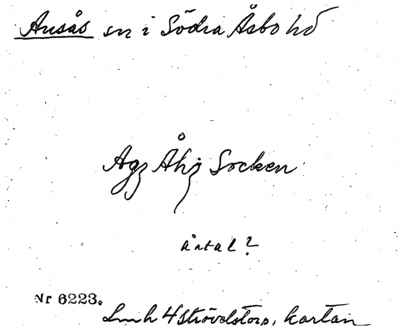 Ausås sn i Södra Åsbo hd
Agz Åhj Socken
årtal?
Nr 6223.
Lmh 4 Strövelstorp, kartan